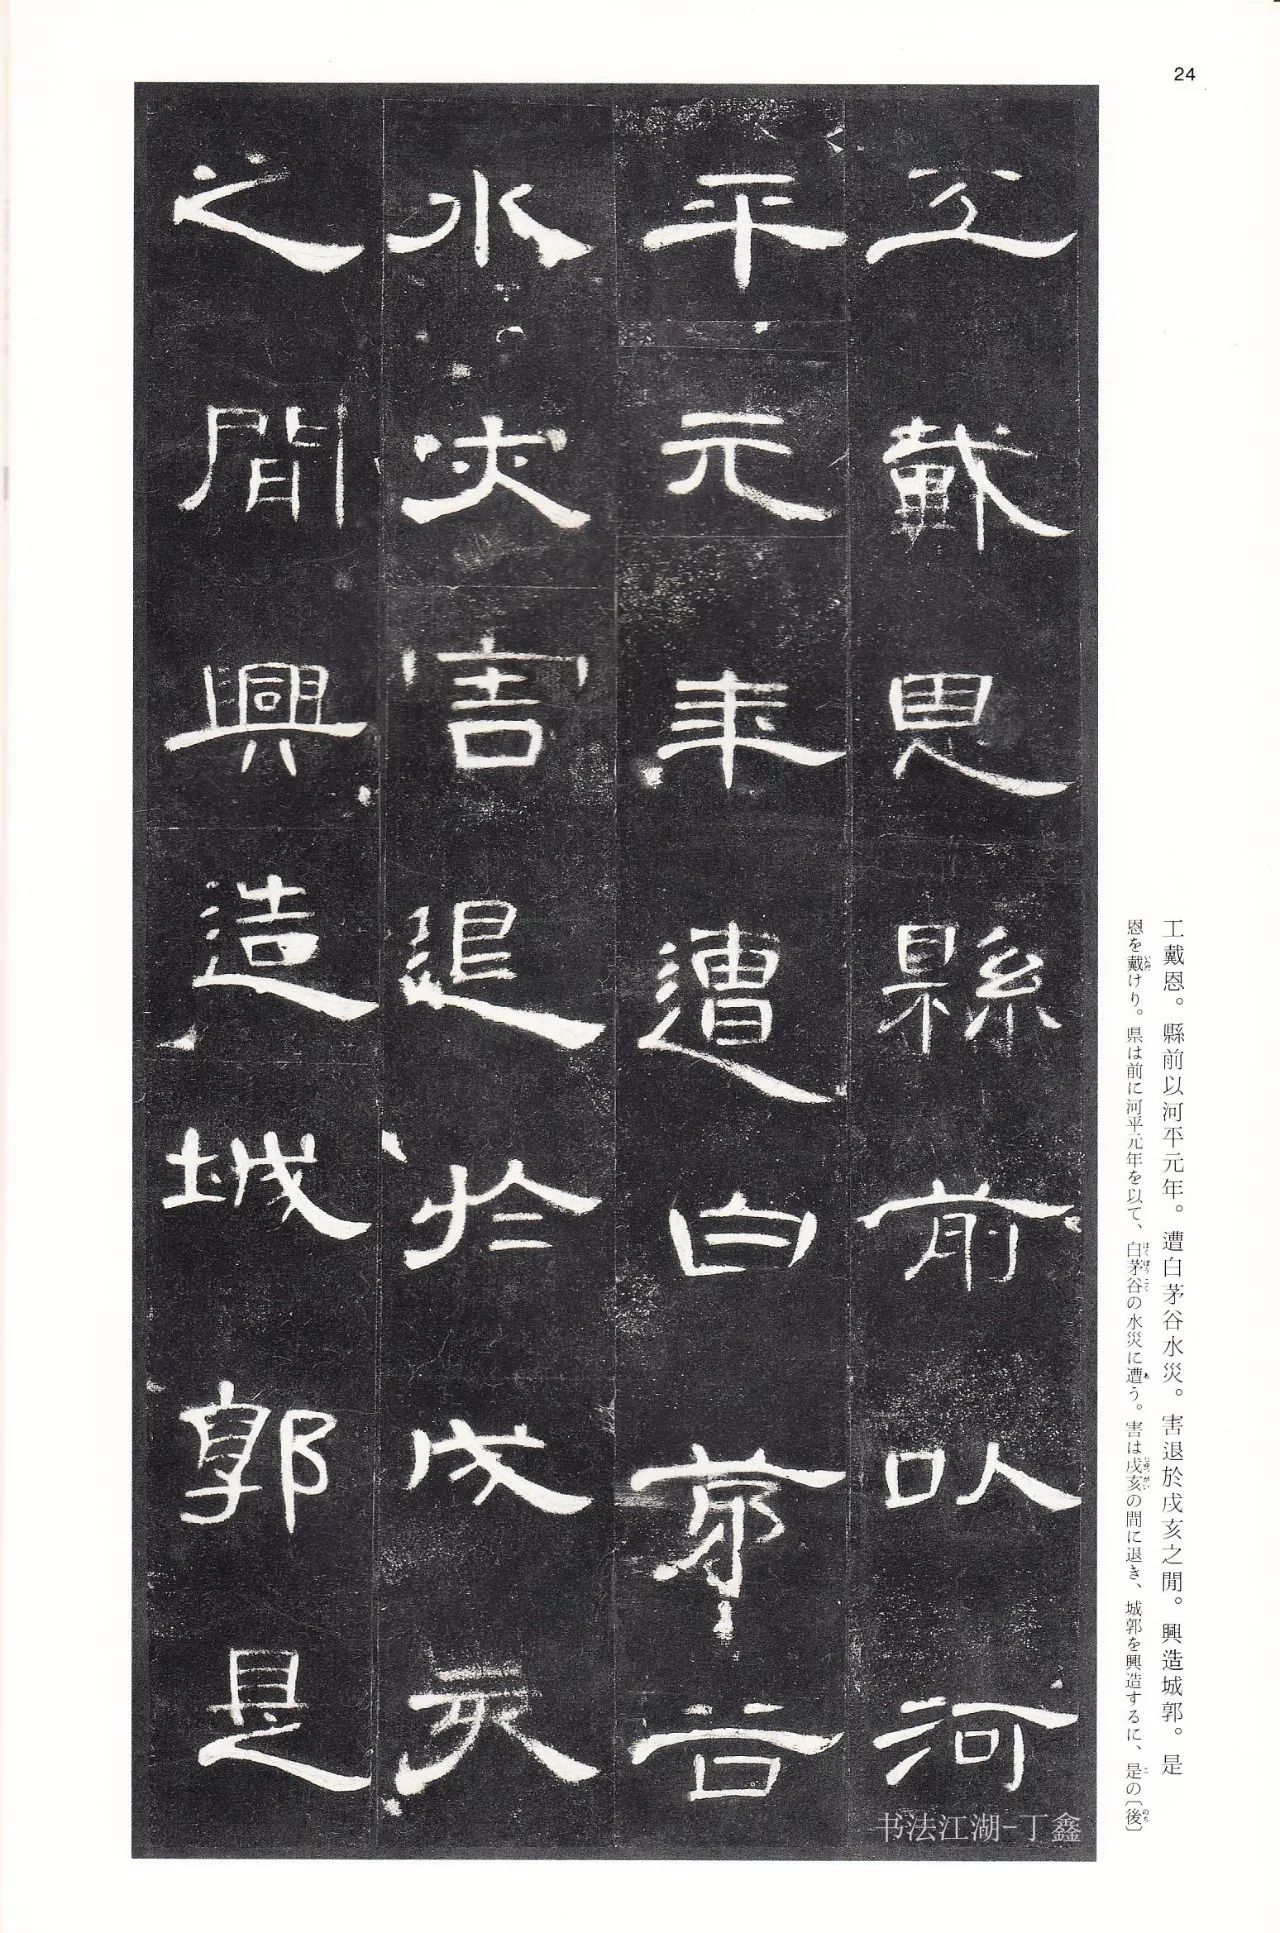 24
工戴恩縣前以河
平元年遭白茅谷
水災害退於戌亥
之間興造城郭是
工戴恩。縣前以河平元年。遭白茅谷水災。害退於戌亥之閒。興造城郭。是
恩を戴けり。県は前に河平元年を以て、白茅谷の水災に遭う。害は戌亥の間に退き、城郭を興造するに、是の〔後〕
书法江湖-丁鑫